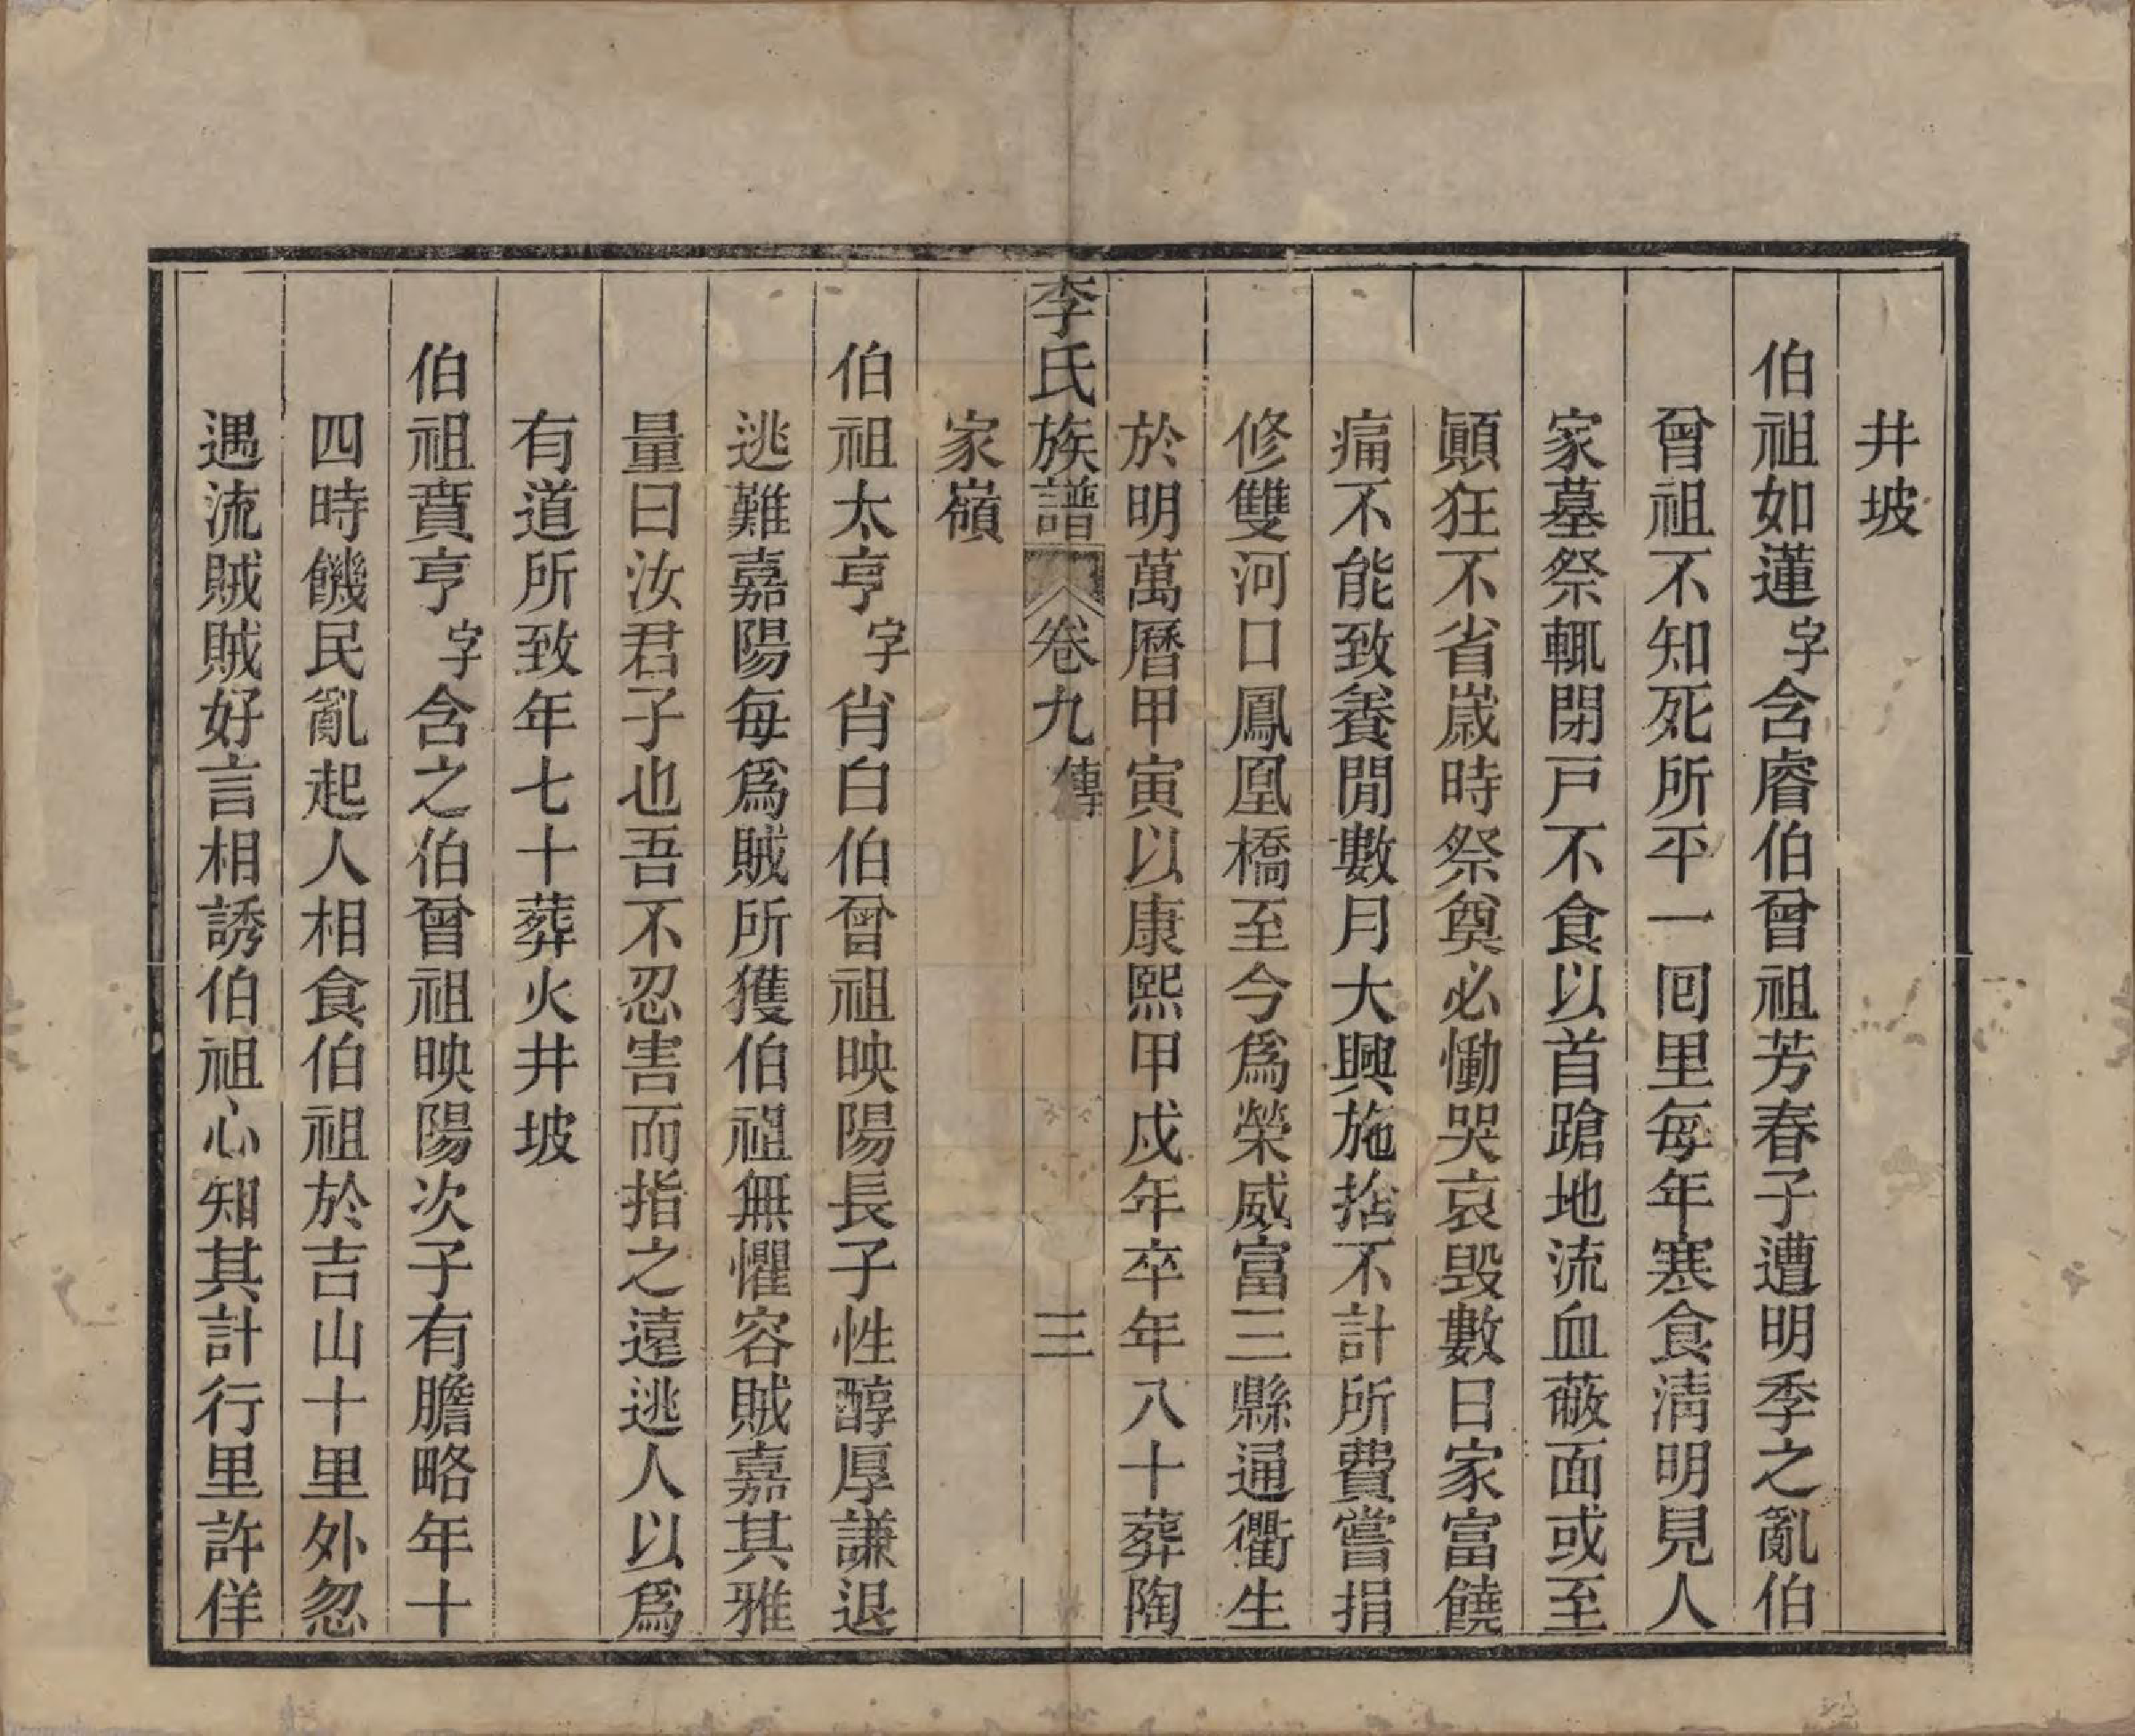 井坡
伯祖如蓮字含睿伯曾祖芳春子遭明季之亂伯
曾祖不知死所平一囘里每年寒食淸明見人
家墓祭輒閉戸不食以首蹌地流血蔽面或至
顚狂不省歲時祭奠必慟哭哀毁數日家富饒
痛不能致養閒數月大興施捨不計所費嘗捐
修雙河口鳳凰橋至今爲榮威富三縣通衢生
於明萬曆甲寅以康熙甲戌年卒年八十葬陶
李氏族譜 卷九傳 三
家嶺
伯祖太亨字肖白伯曾祖映陽長子性醇厚謙退
逃難嘉陽每爲賊所獲伯祖無懼容賊嘉其雅
量曰汝君子也吾不忍害而指之遠逃人以爲
有道所致年七十葬火井坡
伯祖賁亨字含之伯曾祖映陽次子有膽略年十
四時饑民亂起人相食伯祖於吉山十里外忽
遇流賊賊好言相誘伯祖心知其計行里許佯